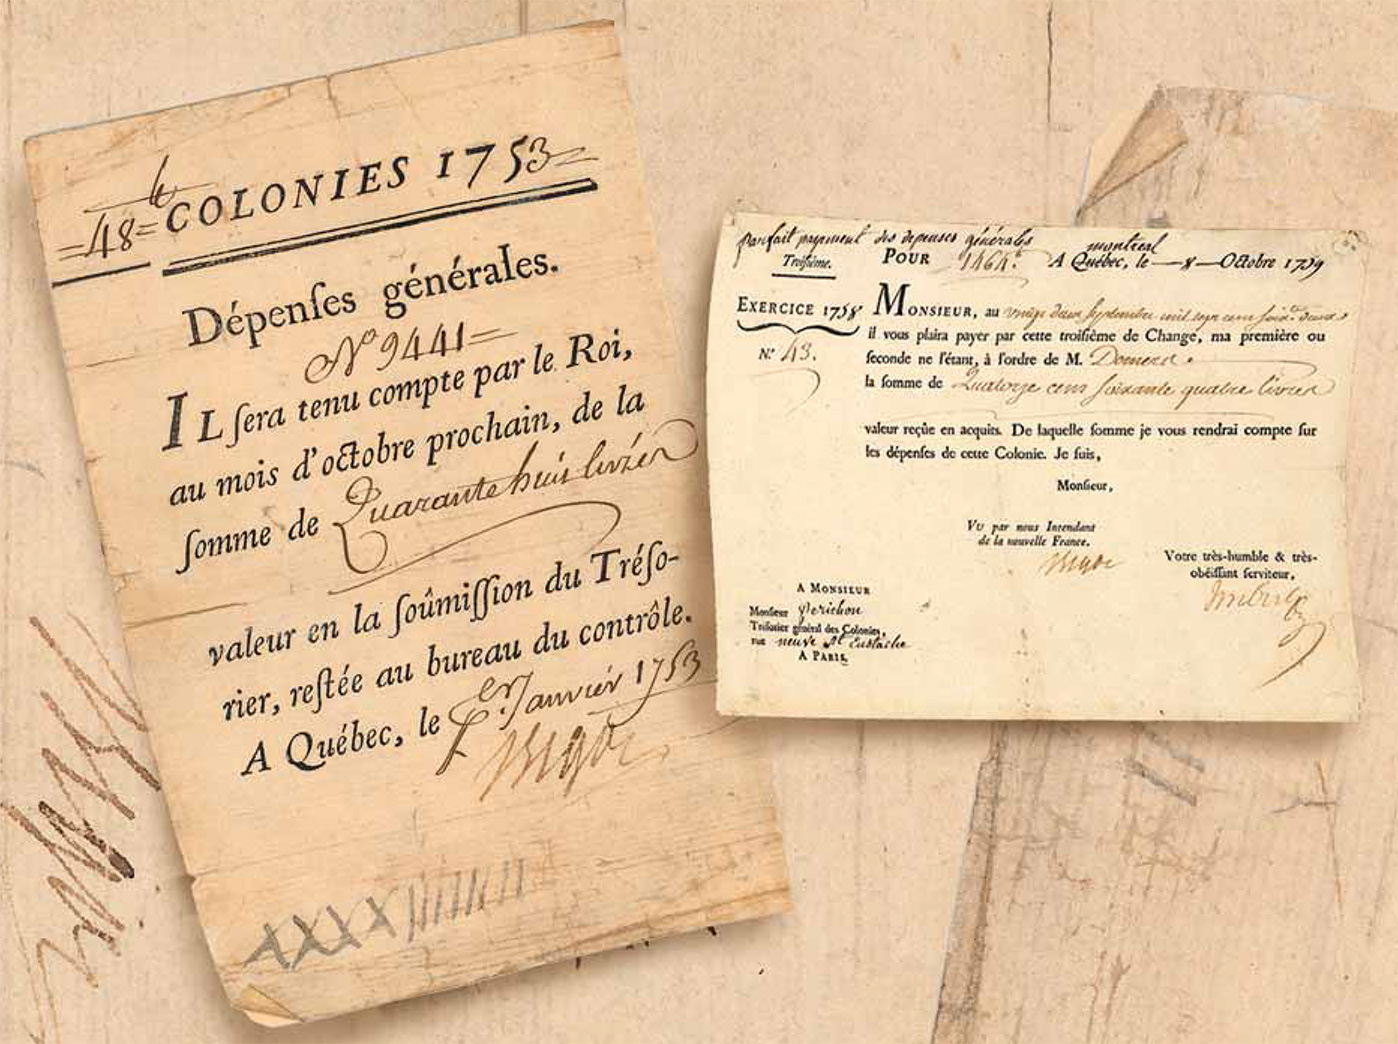 =48=
COLONIES 1753=
Dépenſes générales.
N° 9441=
IL ſera tenu compte par le Roi,
au mois d'octobre prochain, de la
ſomme de Quarante huit livres
valeur en la ſoûmiſſion du Tréſo-
rier, reſtée au bureau du contrôle.
A Québec, le 1.er Janvier 1753
Bigot
XXXXIIIIIIII
parfait payement des depenses générales
Troiſième.
POUR 1464.
montreal
A Québec, le 8 Octobre 1759
EXERCICE 1758
N.° 43.
MONSIEUR, au vingt deux septembre mil sept cens soix.te deux
il vous plaira payer par cette troiſième de Change, ma première ou
ſeconde ne l'étant, à l'ordre de M.
la ſomme de Quatorze cens soixante quatre livres
valeur reçûe en acquits. De laquelle ſomme je vous rendrai compte ſur
les dépenſes de cette Colonie. Je ſuis,
Monſieur,
VU par nous Intendant
de la nouvelle France.
Bigot
Votre très-humble & très-
obéiſſant ſerviteur,
Imbert
A MONSIEUR
Monſieur Perichon
Tréſorier général des Colonies,
rue neuve St. Eustache
A PARIS.